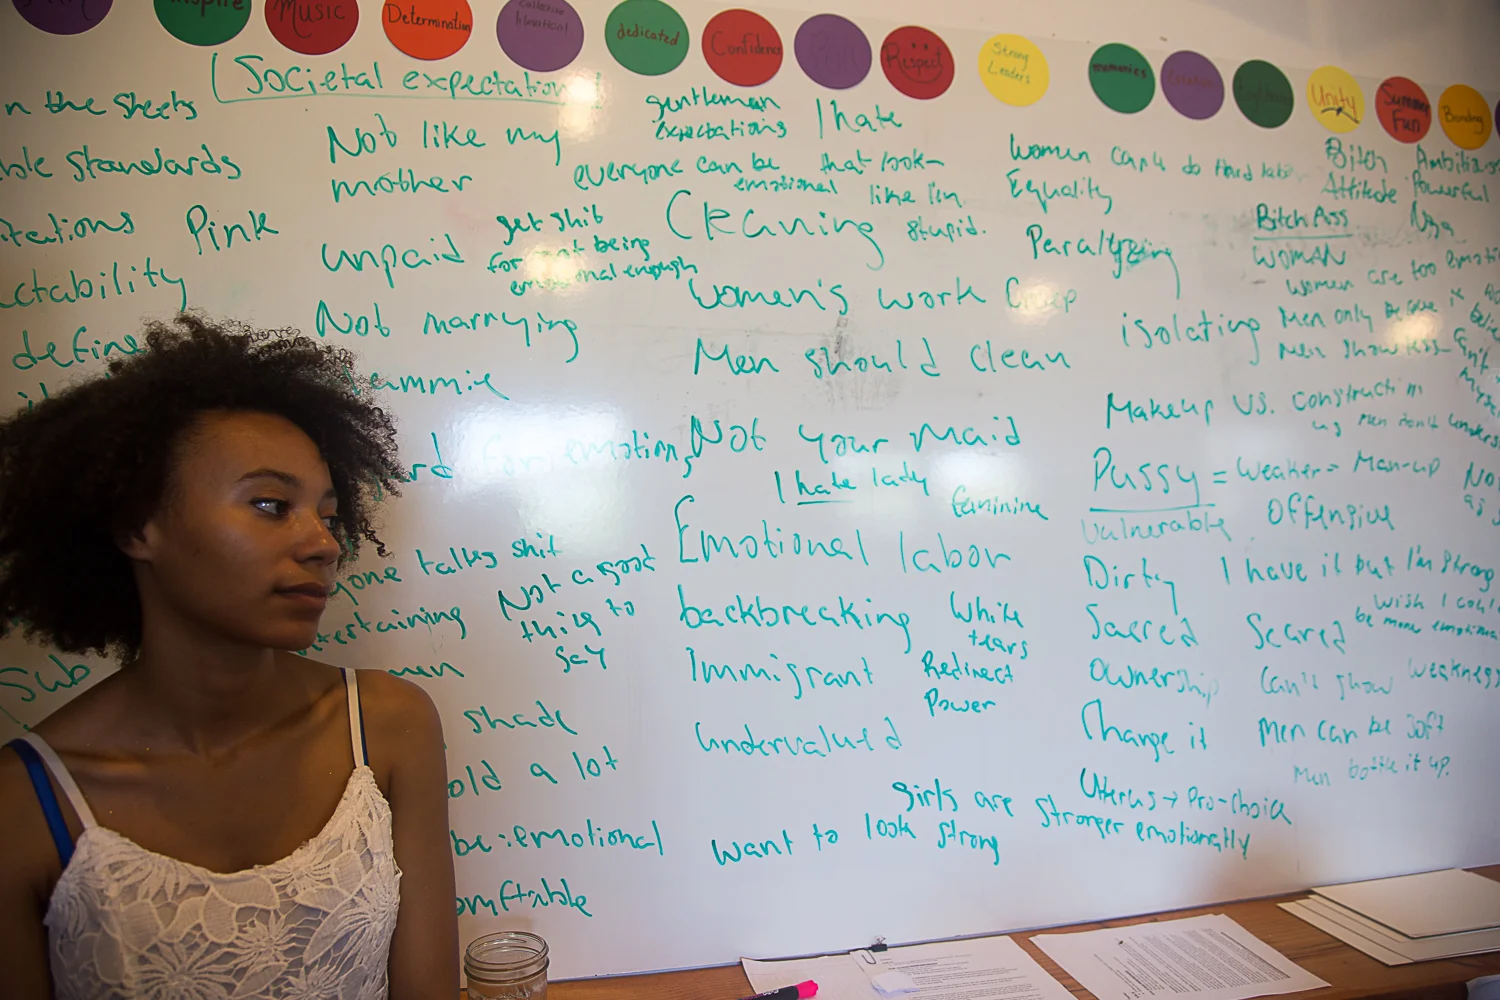 Inspire
Music
Determination
dedicated
Confidence
Respect
Strong
Leaders
memories
Unity
Summer
Fun
Bonding
Societal expectation
n the sheets
ble standards
tations Pink
ctability
define
Not like my
mother
unpaid
get shit
for not being
emotional enough
Not marrying
mammie
ard for emotion
yone talks shit
tertaining
Not a good
thing to
say
Sub
shade
old a lot
be: emotional
omftable
gentleman
expectations
everyone can be
emotional
I hate
that look-
like I'm
stupid.
Cleaning
Women's work
Men should clean
Not your maid
I hate lady
feminine
Emotional labor
backbreaking
White
tears
Immigrant
Redirect
Power
undervalued
girls are stronger emotionally
want to look strong
Women can't do Hard labor
Equality
Paralyzing
isolating
Bitch
Attitude
Ambitious
Powerful
Bitch Ass
WOMAN
Women are too emoti
Men only
Men show
Makeup vs. construction
Men don't unders
Pussy = Weaker = Man-up
Vulnerable Offensive
Dirty I have it but I'm strong
Wish I could
be more emotional
Sacred Scared
Ownership Can't show weakness
Change it Men can be soft
Men bottle it up.
Uterus → Pro-Choice